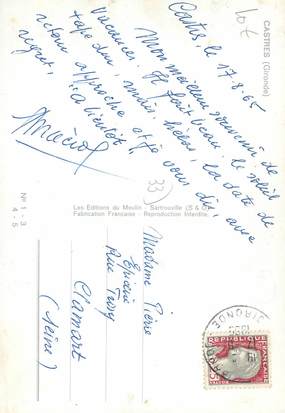 CASTRES (Gironde)
lot
Castres le 17-8-65
Mon meilleur souvenir de
vacances. Il fait beau le soleil
tape dur, mais, hélas, la date de
retour approche et je vous dis, avec
regret,
"A bientôt"
33
Nº 1-3
4-5
Les Editions du Moulin - Sartrouville (S & O)
Fabrication Française - Reproduction Interdite
Madame Pierre
Epicerie
Rue
Clamart
(Seine)
GIRONDE
REPUBLIQUE
FRANÇAISE